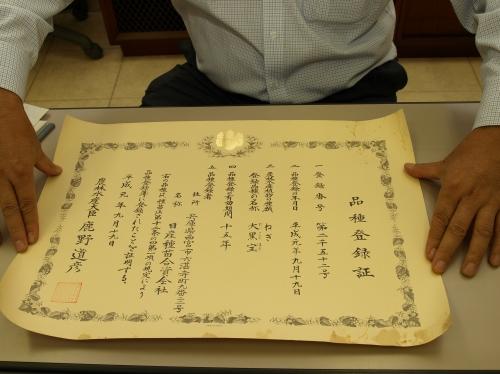 品種登録証
一 登録番号 第二千五十二号
二 品種登録の年月日 平成元年九月十九日
三 農林水産植物の種類 ねぎ
登録品種の名称 大黒宝
四 品種登録の有効期間 十五年
五 品種登録者
住所 兵庫県西宮市六湛寺町九番三号
名称 日産種苗合資会社
右の品種は種苗法第十二条の四第一項の規定により
品種登録簿に登録されたことを証明する。
平成元年九月十九日
農林水産大臣 鹿野道彦